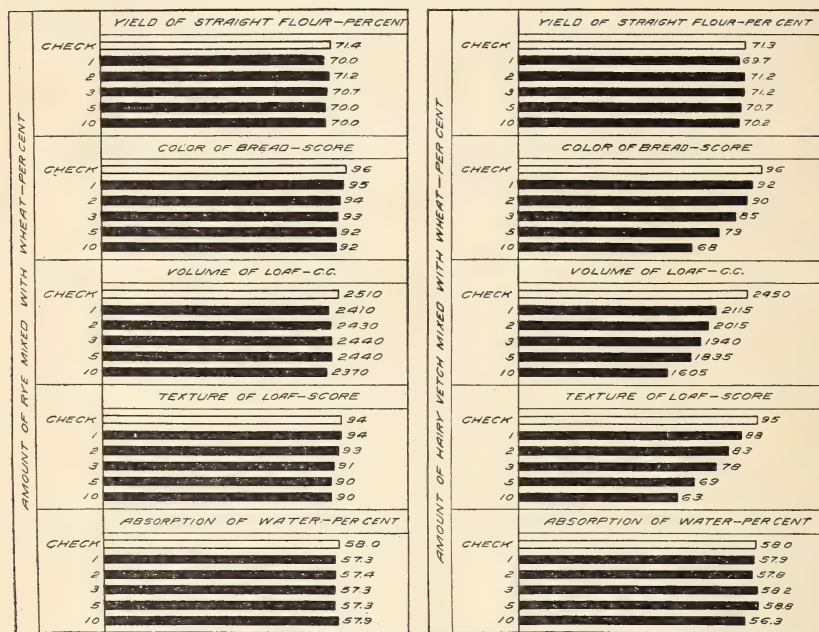 AMOUNT OF RYE MIXED WITH WHEAT-PER CENT
YIELD OF STRAIGHT FLOUR-PERCENT
CHECK 71.4
1 70.0
2 71.2
3 70.7
5 70.0
10 70.0
COLOR OF BREAD-SCORE
CHECK 96
1 95
2 94
3 93
5 92
10 92
VOLUME OF LOAF-C.C.
CHECK 2510
1 2410
2 2430
3 2440
5 2440
10 2370
TEXTURE OF LOAF-SCORE
CHECK 94
1 94
2 93
3 91
5 90
10 90
ABSORPTION OF WATER-PERCENT
CHECK 58.0
1 57.3
2 57.4
3 57.3
5 57.3
10 57.9
AMOUNT OF HAIRY VETCH MIXED WITH WHEAT-PER CENT
YIELD OF STRAIGHT FLOUR-PER CENT
CHECK 71.3
1 69.7
2 71.2
3 71.2
5 70.7
10 70.2
COLOR OF BREAD-SCORE
CHECK 96
1 92
2 90
3 85
5 79
10 68
VOLUME OF LOAF-C.C.
CHECK 2450
1 2115
2 2015
3 1940
5 1835
10 1605
TEXTURE OF LOAF-SCORE
CHECK 95
1 88
2 83
3 78
5 69
10 63
ABSORPTION OF WATER-PERCENT
CHECK 58.0
1 57.9
2 57.8
3 58.2
5 58.8
10 56.3